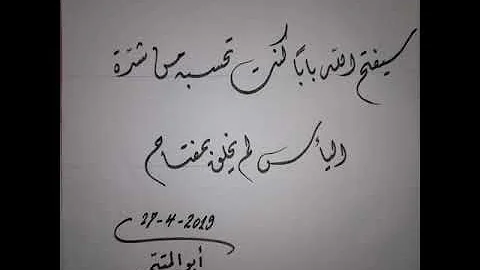 سيفتح الله بابا كنت تحسبه من شدة
اليأس لم يخلق بمفتاح
27-4-2019